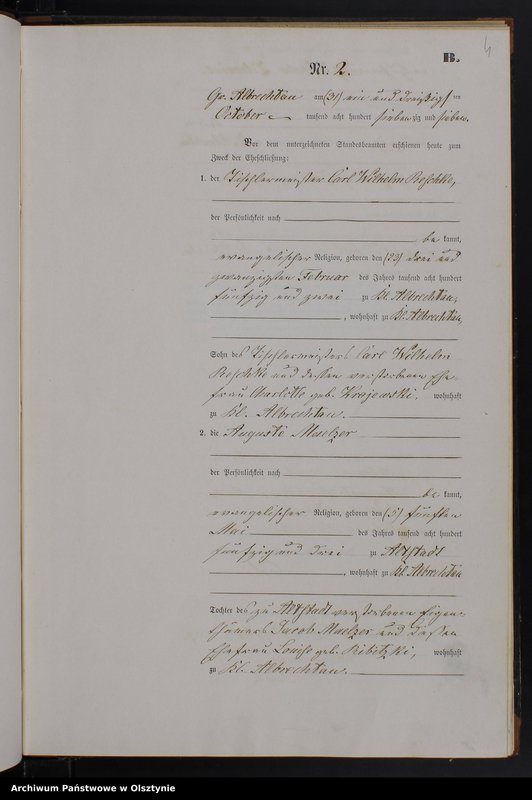 B.
4
Nr. 2.
Gr. Albrechtau am (31) ein und dreißigsten
October tausend acht hundert siebenzig und sieben.
Vor dem unterzeichneten Standesbeamten erschienen heute zum
Zweck der Eheschließung:
1. der Tischlermeister Carl Wilhelm Roschke,
der Persönlichkeit nach
be kannt,
evangelischer Religion, geboren den (23) drei und
zwanzigsten Februar des Jahres tausend acht hundert
fünfzig und zwei zu Kl. Albrechtau,
, wohnhaft zu Kl. Albrechtau,
Sohn des Tischlermeisters Carl Wilhelm
Roschke und dessen verstorbenen Ehe-
frau Charlotte geb. Krajewski, wohnhaft
zu Kl. Albrechtau.
2. die Auguste Maelzer
der Persönlichkeit nach
be kannt,
evangelischer Religion, geboren den (5) fünften
Mai des Jahres tausend acht hundert
fünfzig und drei zu Altstadt
, wohnhaft zu Kl. Albrechtau
Tochter des zu Altstadt verstorbenen Eigen-
thümers Jacob Maelzer und dessen
Ehefrau Louise geb. Ribitzki, wohnhaft
zu Kl. Albrechtau.
Archiwum Państwowe w Olsztynie